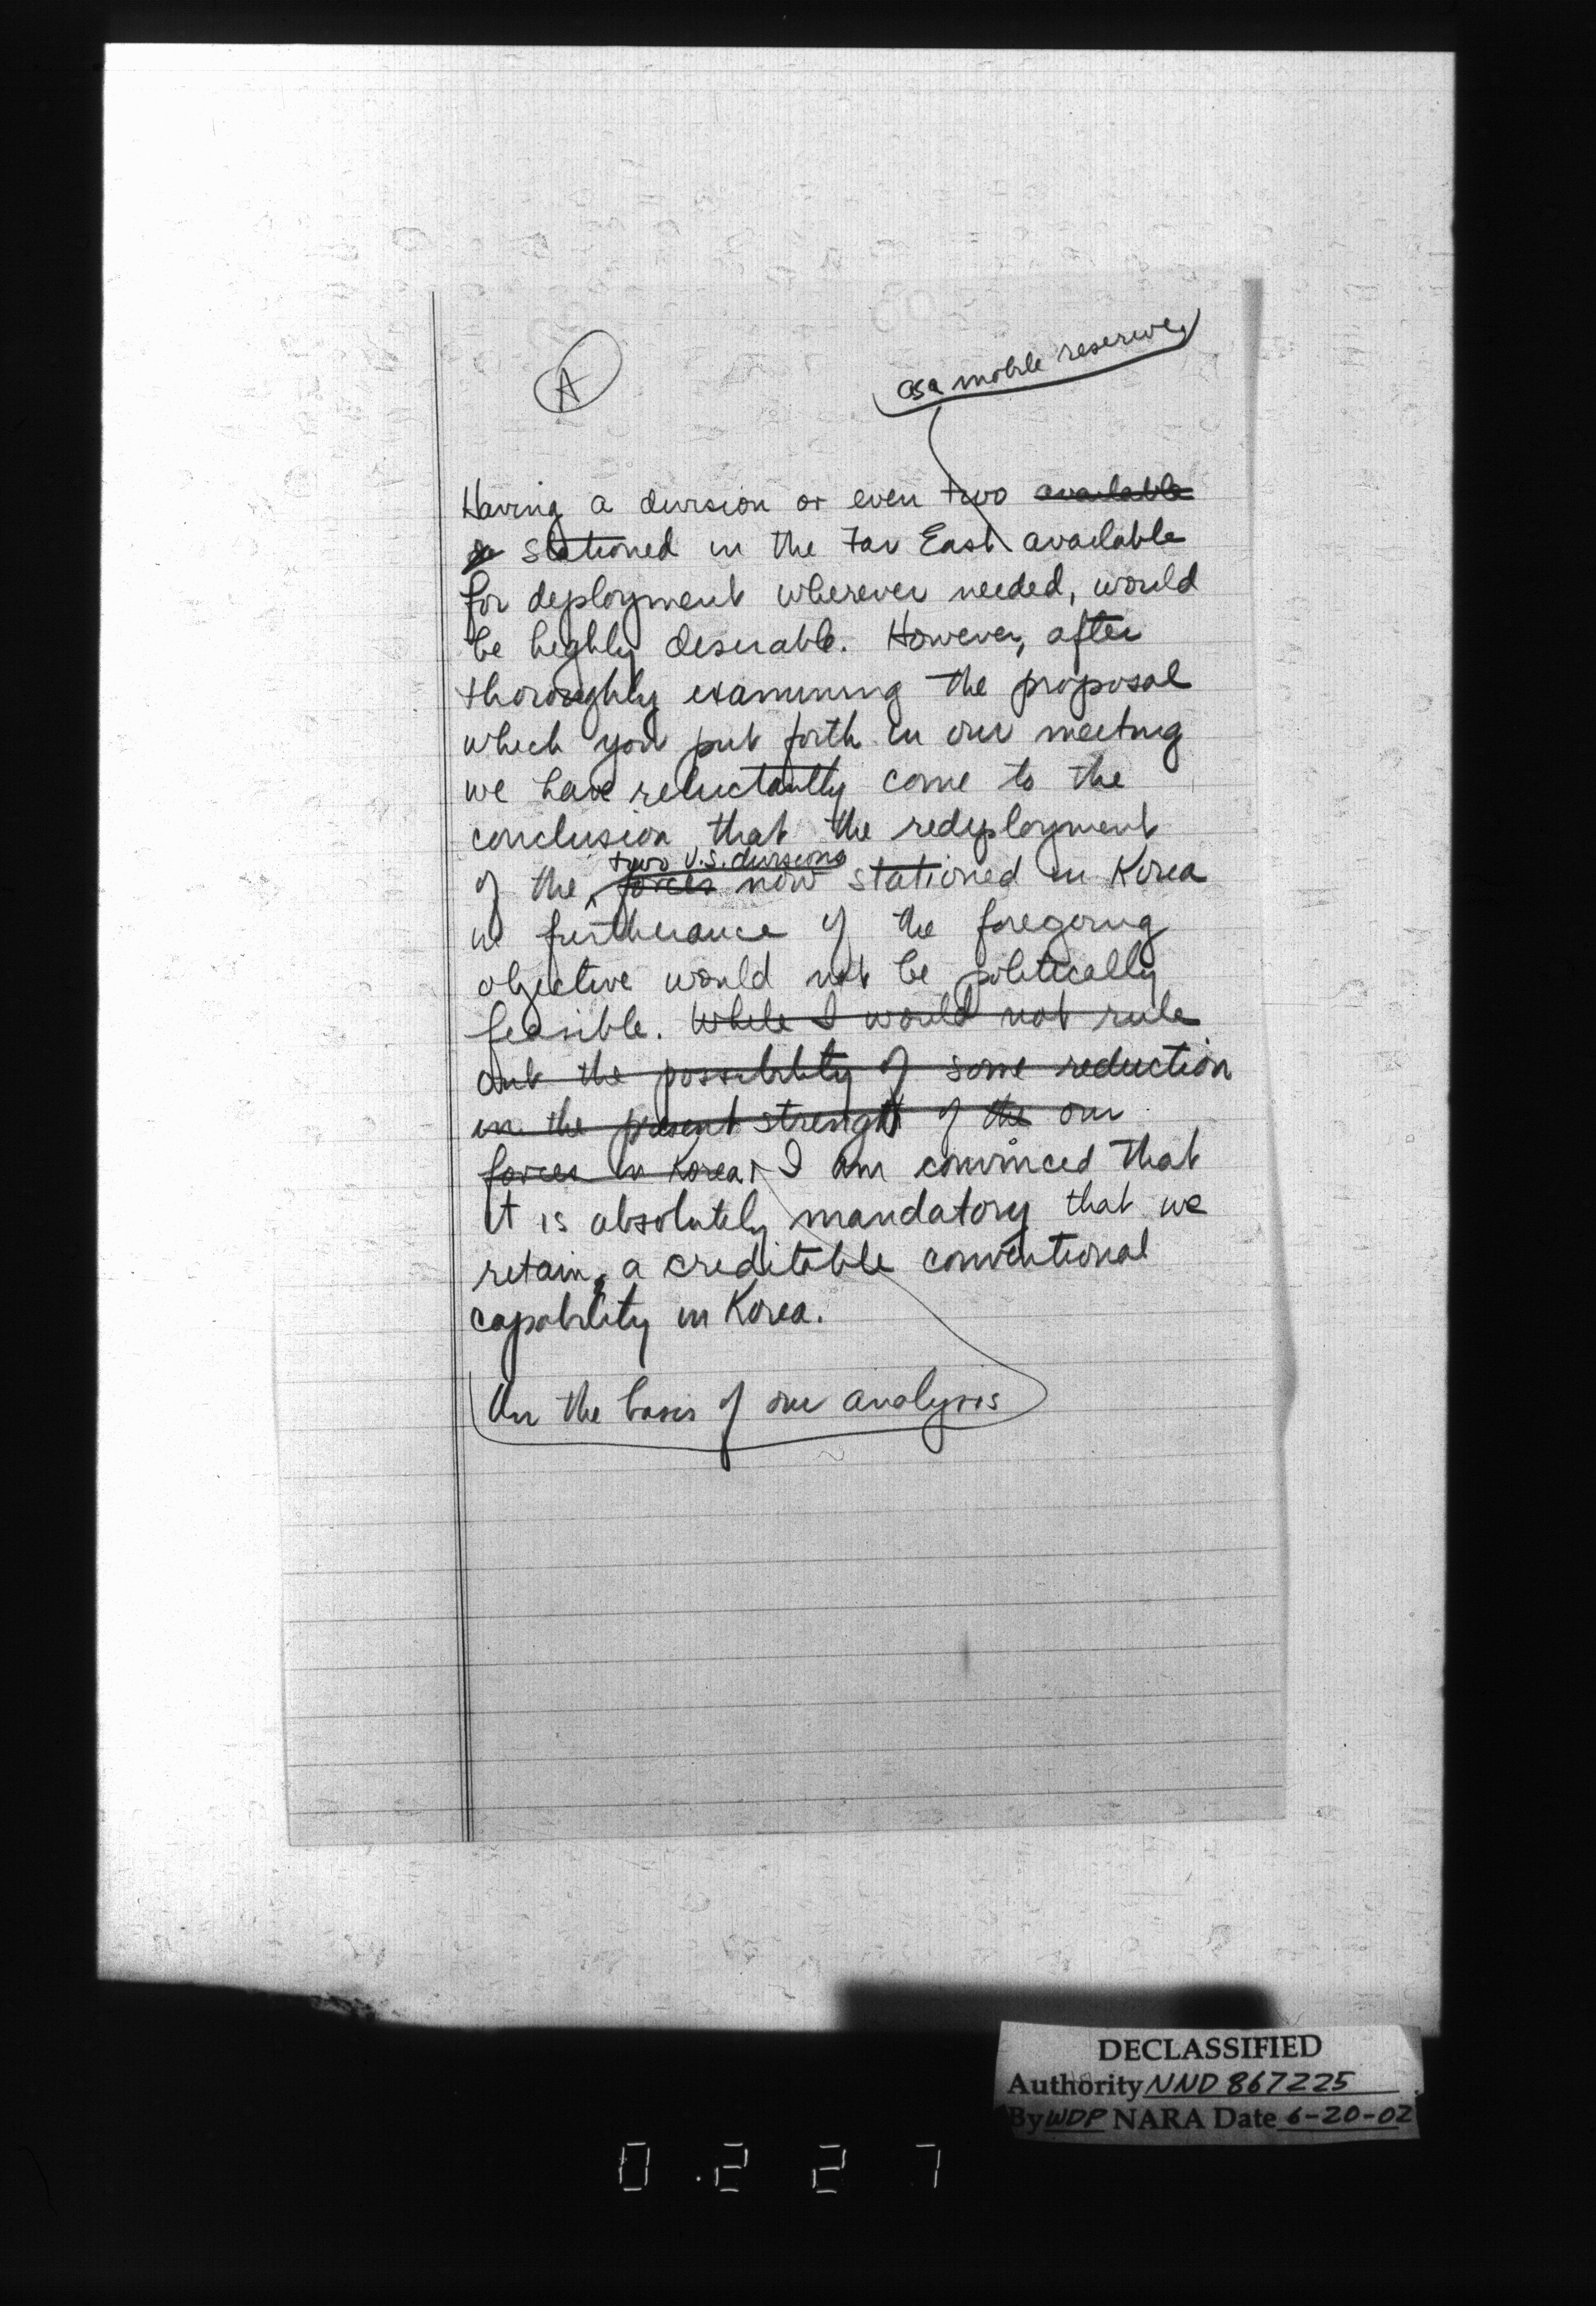 A
as a mobile reserve,
Having a division or even two available
stationed in the Far East available
for deployment wherever needed, would
be highly desirable. However, after
thoroughly examining the proposal
which you put forth in our meeting
we have reluctantly come to the
conclusion that the redeployment
two U.S. divisions
of the forces now stationed in Korea
in furtherance of the foregoing
objective would not be politically
feasible. While I would not rule
out the possibility of some reduction
in the present strength of the our
forces in Korea, I am convinced that
it is absolutely mandatory that we
retain a creditable conventional
capability in Korea.
On the basis of our analysis
DECLASSIFIED
Authority NND 867225
By WDP NARA Date 6-20-02
0.227